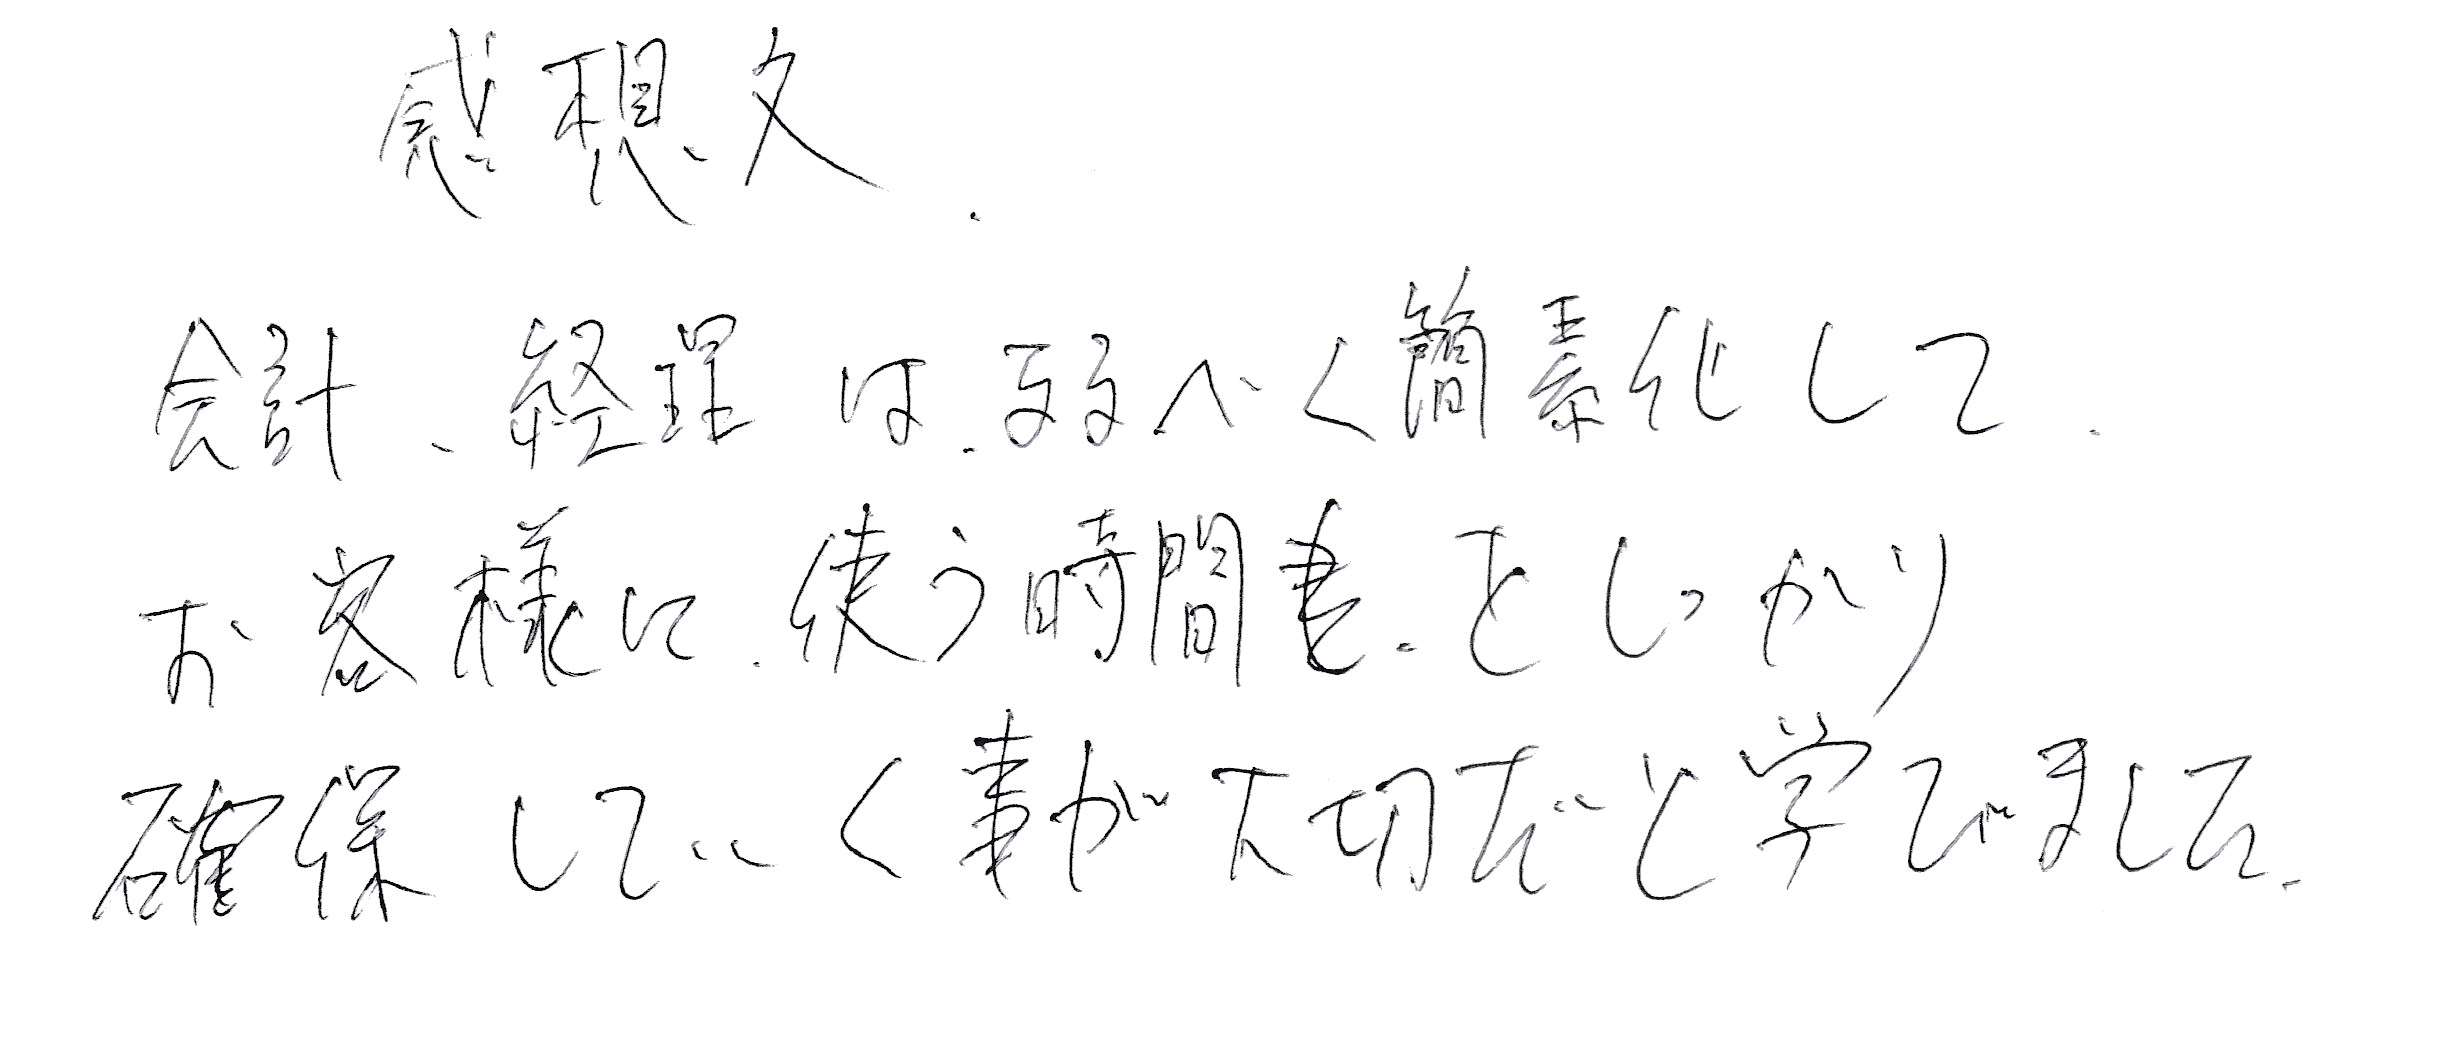 感想文.
会計、経理は.なるべく簡素化して.
お客様に.使う時間を.をしっかり
確保していく事が大切だと学びました.